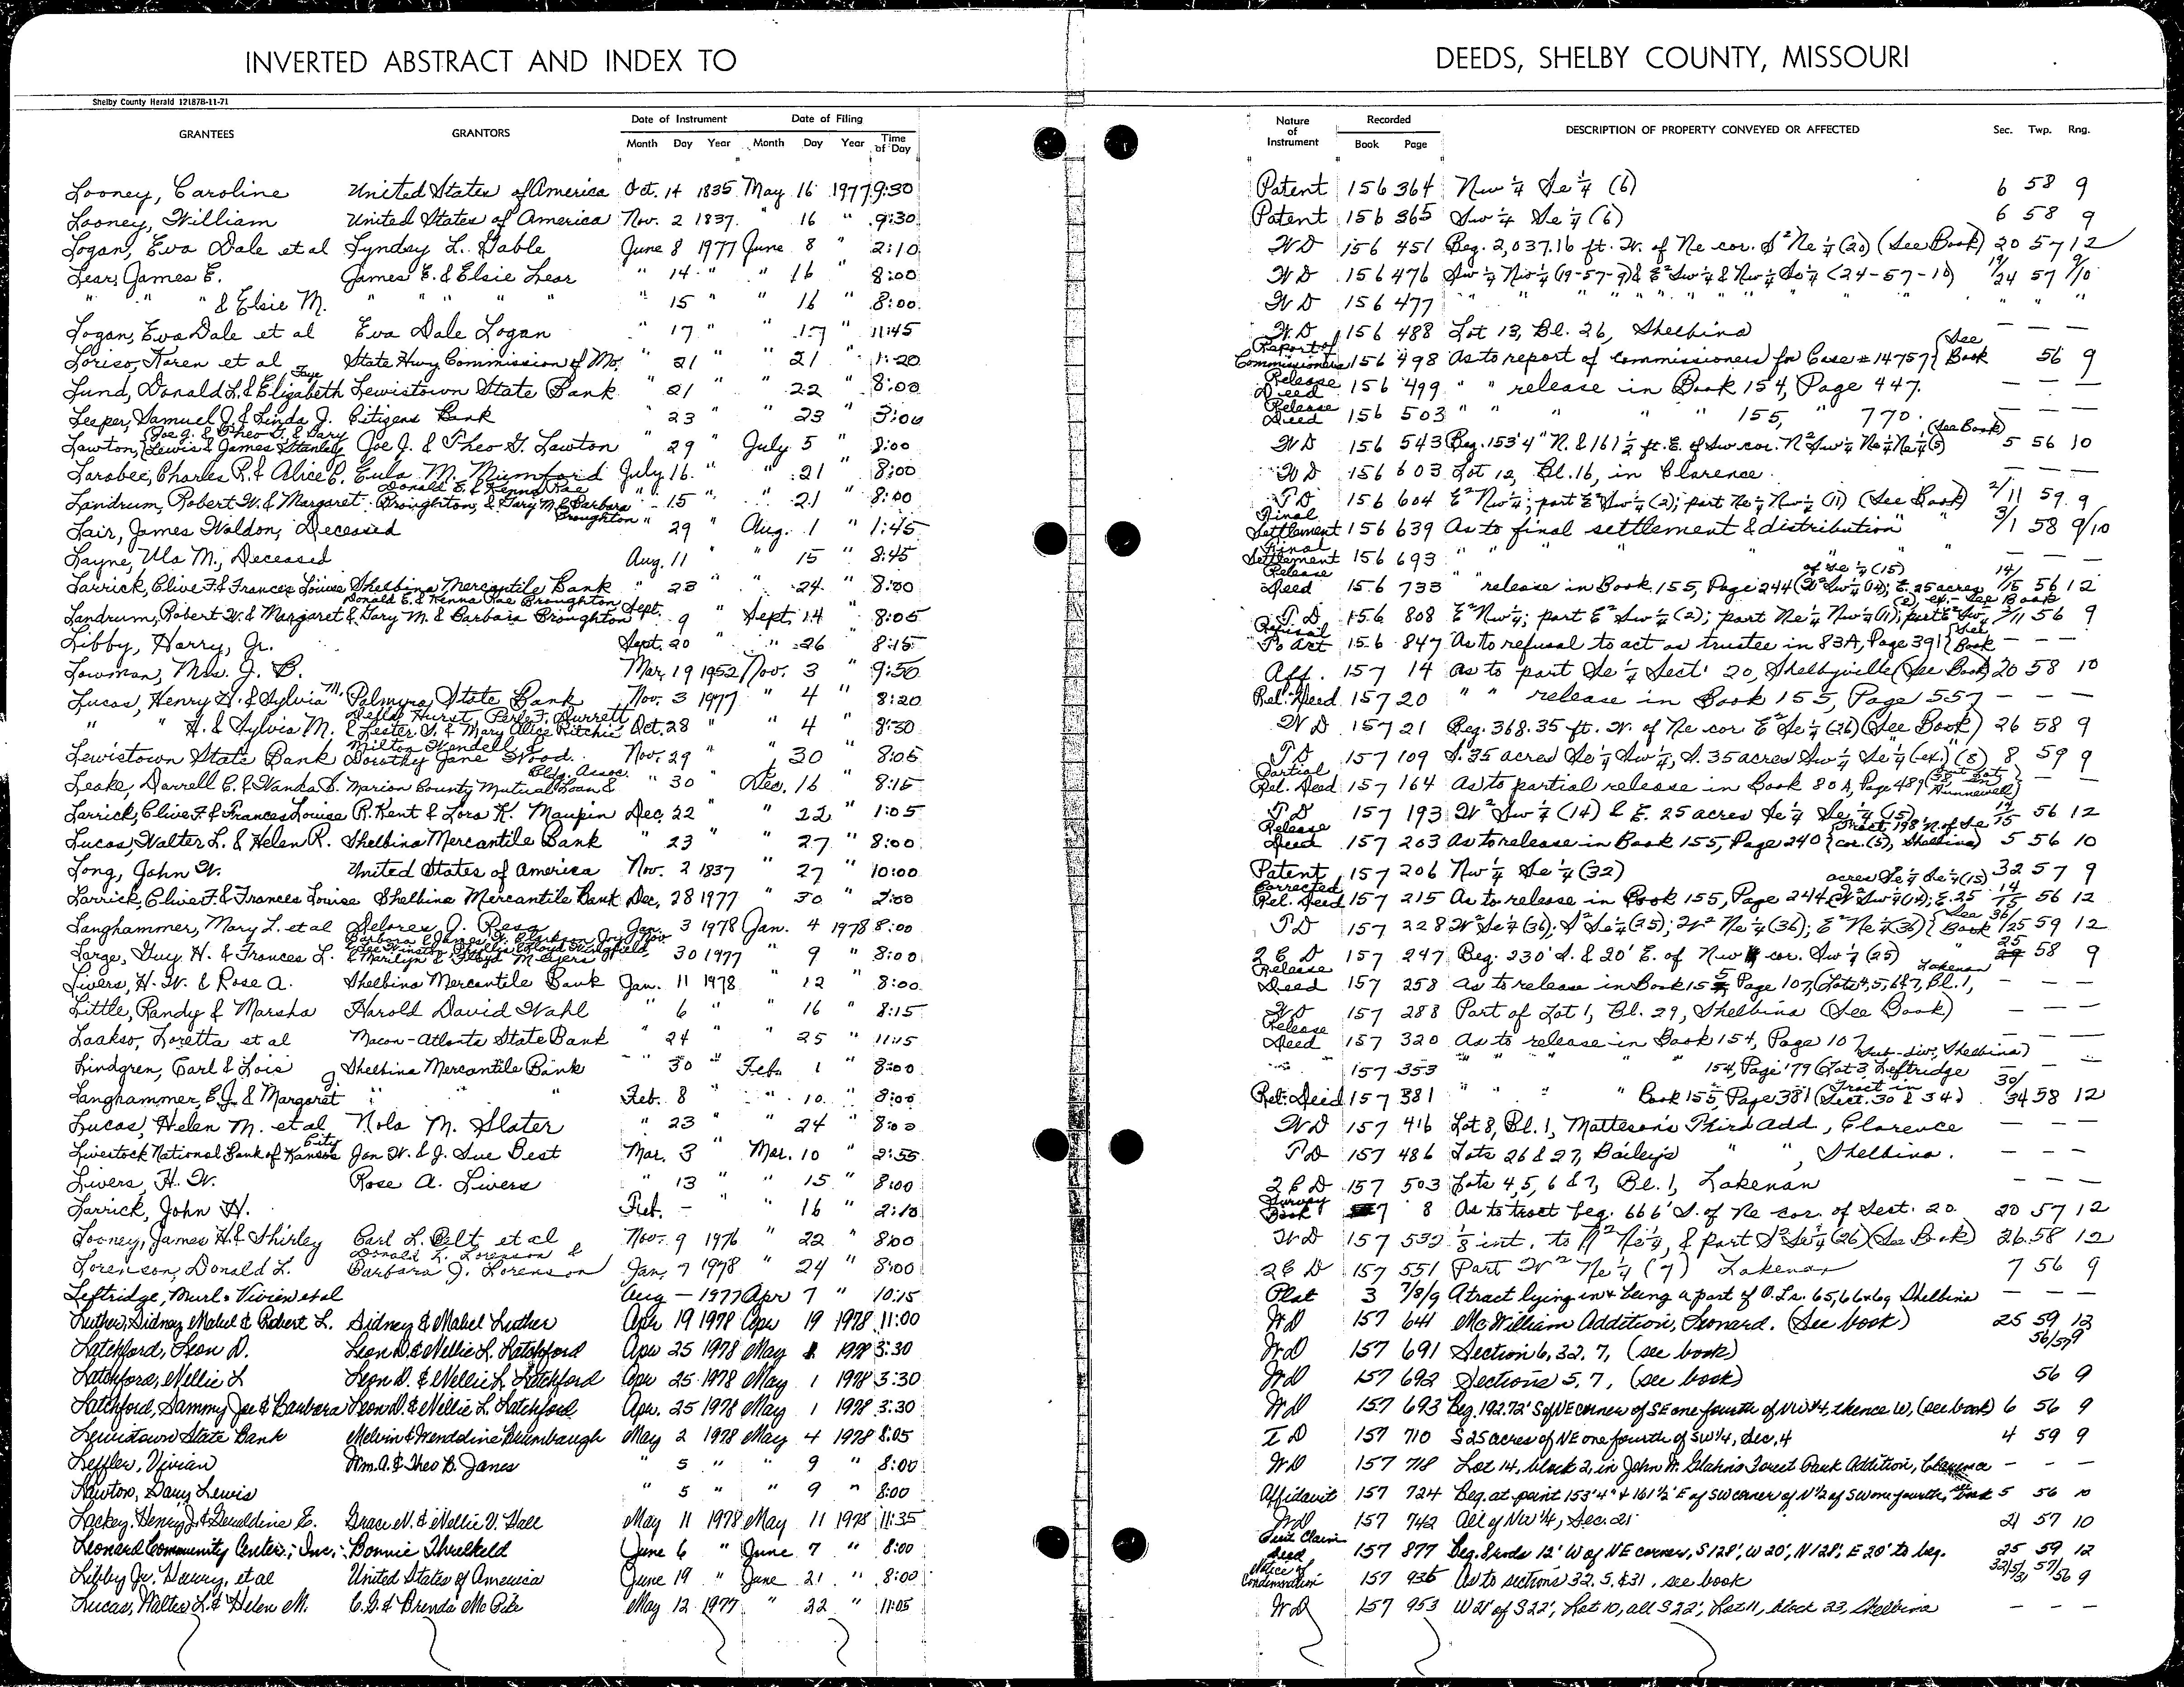 INVERTED ABSTRACT AND INDEX TO DEEDS, SHELBY COUNTY, MISSOURI
Shelby County Herald 121878-11-71
GRANTEES GRANTORS Date of Instrument Month Day Year Date of Filing Month Day Year Time of Day Nature of Instrument Recorded Book Page DESCRIPTION OF PROPERTY CONVEYED OR AFFECTED Sec. Twp. Rng.
Looney, Caroline United States of America Oct. 14 1835 May 16 1977 9:30 Patent 156 364 Nw ¼ Se ¼ (6) 6 58 9
Looney, William United States of America Nov. 2 1837 " 16 " 9:30 Patent 156 365 Sw ¼ Se ¼ (6) 6 58 9
Logan, Eva Dale et al Lyndsy L. Gable June 8 1977 June 8 " 2:10 WD 156 451 Beg. 2,037.16 ft. W. of Ne cor. S² Ne ¼ (20) (See Book) 20 57 12
Lear, James E. James E. & Elsie Lear " 14 " " 16 " 8:00 WD 156 476 Sw ¼ Nw ¼ (19-57-9) & E² Sw ¼ & Nw ¼ Se ¼ (24-57-10) 19/24 57 9/10
" " " & Elsie M. " " " " " 15 " " 16 " 8:00 WD 156 477 " " " " " " " " " " "
Logan, Eva Dale et al Eva Dale Logan " 17 " " 17 " 11:45 WD 156 488 Lot 13, Bl. 26, Shelbina — — —
Loriso, Karen et al State Hwy Commission of Mo. " 21 " 21 " 1:20 Report of Commissioners 156 498 As to report of commissioners for Case #14757 (See Book 56 9
Lund, Donald L. & Elizabeth Faye Lewistown State Bank " 21 " 22 " 8:00 Release Deed 156 499 " " release in Book 154, Page 447. — — —
Leeper, Samuel J. & Linda J. Citizens Bank " 23 " 23 " 3:00 Release Deed 156 503 " " " " " 155, " 770. — — —
Lawton, (Joe J. & Theo G. & Gary Lewis & James Stanley Joe J. & Theo G. Lawton " 29 July 5 " 8:00 WD 156 543 Beg. 153'4" N. & 161½ ft. E. of Sw cor. N² Sw ¼ Ne ¼ Ne ¼ (5) (See Book) 5 56 10
Larabee, Charles R. & Alice C. Eula M. Mumford July 16 " " 21 " 8:00 WD 156 603 Lot 12, Bl. 16, in Clarence. — — —
Landrum, Robert W. & Margaret Donald E. & Kenna Rae Broughton, & Gary M. & Barbara Broughton " 15 " " 21 " 8:00 TD 156 604 E² Nw ¼; part E² Sw ¼ (2); part Ne ¼ Nw ¼ (11) (See Book) 2/11 59 9
Lair, James Waldon, Deceased " 29 " Aug. 1 " 1:45 Final Settlement 156 639 As to final settlement & distribution " " 3/1 58 9/10
Layne, Ula M., Deceased Aug. 11 " " 15 " 8:45 Final Settlement 156 693 " " " " " " — — —
Larrick, Clive F. & Frances Louise Shelbina Mercantile Bank " 23 " " 24 " 8:00 Release Deed 156 733 " " release in Book 155, Page 244 (W² Sw ¼ (14); E. 25 acres of Se ¼ (15) 14/15 56 12
Landrum, Robert W. & Margaret Donald E. & Kenna Rae Broughton & Gary M. & Barbara Broughton Sept. 9 " Sept. 14 8:05 TD 156 808 E² Nw ¼; part E² Sw ¼ (2); part Ne ¼ Nw ¼ (11); part E² Sw ¼ (2) ex. - See Book 2/11 56 9
Libby, Harry, Jr. Sept. 20 " " 26 " 8:15 Refusal To Act 156 847 As to refusal to act as trustee in 83A, Page 391 (See Book — — —
Lowman, Mrs. J. B. Mar. 19 1952 Nov. 3 " 9:50 Aff. 157 14 as to part Se ¼ Sect. 20, Shelbyville (See Book) 20 58 10
Lucas, Henry H. & Sylvia M. Palmyra State Bank Nov. 3 1977 " 4 " 8:20 Rel. Deed 157 20 " " release in Book 155, Page 557 — — —
" " H. & Sylvia M. Della Hurst, Perle F. Durrett, & Lester G. & Mary Alice Ritchie Oct. 28 " 4 " 8:30 WD 157 21 Beg. 368.35 ft. W. of Ne cor E² Se ¼ (26) (See Book) 26 58 9
Lewistown State Bank Milton Wendell & Dorothy Jane Wood. Nov. 29 " " 30 8:05 TD 157 109 S. 35 acres Se ¼ Sw ¼, S. 35 acres Sw ¼ Se ¼ (ex.) (8) 8 59 9
Leake, Darrell E. & Wanda S. Marion County Mutual Loan & Bldg. Assoc. " 30 Dec. 16 8:15 Partial Rel. Deed 157 164 As to partial release in Book 80A, Page 489 — —
Larrick, Clive F. & Frances Louise R. Kent & Lora K. Maupin Dec. 22 " " 22 " 1:05 TD 157 193 W² Sw ¼ (14) & E. 25 acres Se ¼ Se ¼ (15) 14/15 56 12
Lucas, Walter L. & Helen R. Shelbina Mercantile Bank " 23 " 27 " 8:00 Release Deed 157 203 As to release in Book 155, Page 240 (Tract 198' N. of Se cor. (5), Shelbina) 5 56 10
Long, John W. United States of America Nov. 2 1837 " 27 10:00 Patent 157 206 Nw ¼ Se ¼ (32) 32 57 9
Larrick, Clive F. & Frances Louise Shelbina Mercantile Bank Dec. 28 1977 " 30 " 2:00 Corrected Rel. Deed 157 215 As to release in Book 155, Page 244 (W² Sw ¼ (14); E. 25 acres Se ¼ Se ¼ (15) 14/15 56 12
Langhammer, Mary L. et al Delores J. Ress Jan. 3 1978 Jan. 4 1978 8:00 TD 157 228 W² Se ¼ (36); S² Se ¼ (25); W² Ne ¼ (36); E² Ne ¼ (36) (See Book 36/25 59 12
Large, Guy H. & Frances L. & Marilyn & Floyd Meyers Nov. 30 1977 " 9 " 8:00 2 C D 157 247 Beg. 230' S. & 20' E. of Nw cor. Sw ¼ (25) 25 58 9
Livers, H. W. & Rose A. Shelbina Mercantile Bank Jan. 11 1978 " 12 " 8:00 Release Deed 157 258 As to release in Book 155, Page 107, (Lots 4, 5, 6 & 7, Bl. 1, Lakenan — — —
Little, Randy & Marsha Harold David Wahl " 6 " 16 " 8:15 WD 157 288 Part of Lot 1, Bl. 29, Shelbina (See Book) — — —
Laakso, Loretta et al Macon-Atlanta State Bank " 24 " 25 " 11:15 Release Deed 157 320 As to release in Book 154, Page 107 — — —
Lindgren, Carl & Lois Shelbina Mercantile Bank " 30 " Feb. 1 " 8:00 " 157 353 " " " " 154, Page 79 (Lot 3 Leftridge Sub-div, Shelbina) — —
Langhammer, E. J. & Margaret " " " Feb. 8 " " 10 " 8:00 Rel. Deed 157 381 " " " " Book 155, Page 381 (Tract in Sect. 30 & 34) 30/34 58 12
Lucas, Helen M. et al Nola M. Slater " 23 " " 24 " 8:00 WD 157 416 Lot 8, Bl. 1, Matteson's Third Add., Clarence — — —
Livestock National Bank of Kansas City Jon W. & J. Sue Best Mar. 3 " Mar. 10 " 2:55 TD 157 486 Lots 26 & 27, Bailey's " ", Shelbina. — — —
Livers, H. W. Rose A. Livers " 13 " " 15 " 8:00 2 C D 157 503 Lots 4, 5, 6 & 7, Bl. 1, Lakenan — — —
Larrick, John H. Feb. — " " 16 " 2:10 Survey Book 7 8 As to tract beg. 666' S. of Ne cor. of Sect. 20. 20 57 12
Looney, James H. & Shirley Carl L. Belt et al Nov. 9 1976 " 22 " 8:00 WD 157 532 ⅛ int. to N² Ne ¼, & part S² Se ¼ (26) (See Book) 26 58 12
Lorenson, Donald L. Donald L. Lorenson & Barbara J. Lorenson Jan. 7 1978 " 24 " 8:00 2 C D 157 551 Part W² Ne ¼ (7) Lakenan 7 56 9
Leftridge, Murl & Vivien et al Aug — 1977 Apr 7 " 10:15 Plat 3 7/8/9 A tract lying in & being a part of O.Ls. 65, 66 & 69 Shelbina — — —
Luther, Sidney Mabel & Robert L. Sidney & Mabel Luther Apr 19 1978 Apr 19 1978 11:00 WD 157 641 McWilliam Addition, Leonard. (See book) 25 59 12
Latchford, Leon D. Leon D. & Nellie L. Latchford Apr 25 1978 May 1 1978 3:30 WD 157 691 Section 6, 32, 7, (see book) 56/57 9
Latchford, Nellie L Leon D. & Nellie L. Latchford Apr 25 1978 May 1 1978 3:30 WD 157 692 Sections 5, 7, (see book) 56 9
Latchford, Sammy Joe & Barbara Leon D. & Nellie L. Latchford Apr. 25 1978 May 1 1978 3:30 WD 157 693 Beg. 192.72' S of NE corner of SE one fourth of NW ¼, thence W, (see book) 6 56 9
Lewistown State Bank Melvin & Wenddine Brumbaugh May 2 1978 May 4 1978 8:05 TD 157 710 S 25 acres of NE one fourth of SW ¼, Sec. 4 4 59 9
Leffler, Vivian Wm. A. & Theo B. Janes " 5 " " 9 " 8:00 WD 157 718 Lot 14, block 2, in John W. Glahn's Forest Park Addition, Clarence — — —
Lawton, Gary Lewis " 5 " " 9 " 8:00 Affidavit 157 724 Beg. at point 153'4" & 161½' E of SW corner of N½ of SW one fourth, see book 5 56 10
Lackey, Henry J. & Geraldine E. Grace N. & Nellie V. Hall May 11 1978 May 11 1978 11:35 WD 157 742 All of NW ¼, Sec. 21 21 57 10
Leonard Community Center, Inc. Bonnie Threlkeld June 6 " June 7 " 8:00 Quit Claim Deed 157 877 Beg. 8 rods 12' W of NE corner, S 128', W 20', N 128', E 20' to beg. 25 59 12
Libby Jr. Harry, et al United States of America June 19 " June 21 " 8:00 Notice of Condemnation 157 936 As to sections 32, 5, & 31, see book 32/5/31 57/56 9
Lucas, Walter L. & Helen M. C. G. & Brenda McPike May 12 1977 " 22 " 11:05 WD 157 953 W 21' of S 22', Lot 10, all S 22', Lot 11, block 23, Shelbina — — —